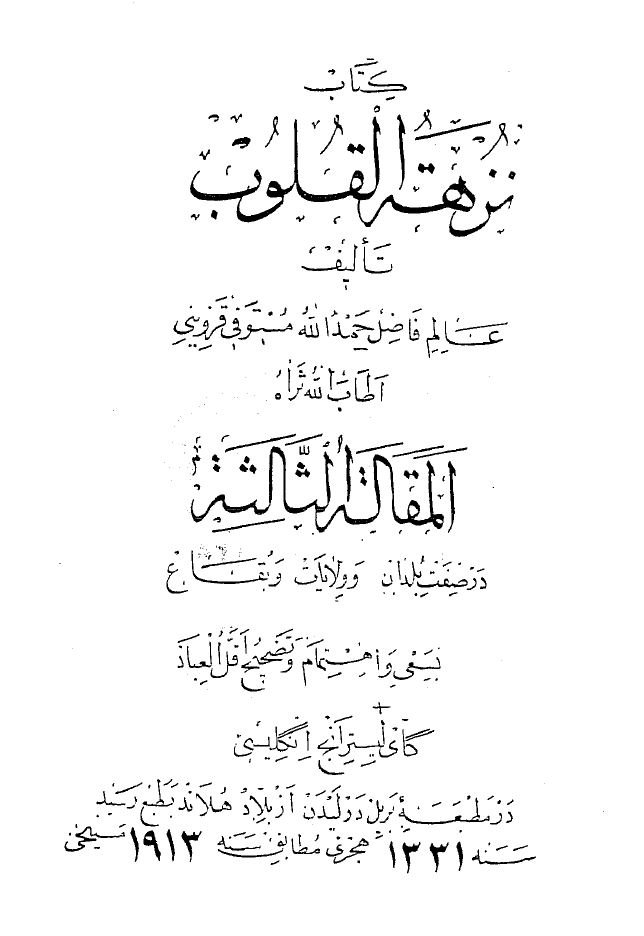 كِتَاب
نزهة القُلُوب
تأليف
عَالِم فَاضِل حَمْدُ اللّٰه مُسْتَوفى قزوينى
اَطَابَ اللّٰه ثَرَاهُ
اَلمَقَالَة الثَّالِثَة
دَر صِفَتِ بُلدان وَوِلايَات وَبُقَاع
بسَعْى وَاِهْتِمَام وَتَصْحِيح اَقَلّ العِبَاد
گاى لِيسترَانج اِنگليسى
دَر مَطبَعَهٔ بريل دَر لَيدن اَز بِلاد هُلاند بَطبع رَسِيد
سَنه ١٣٣١ هجرى مُطابق سَنه ١٩١٣ مَسِيحى